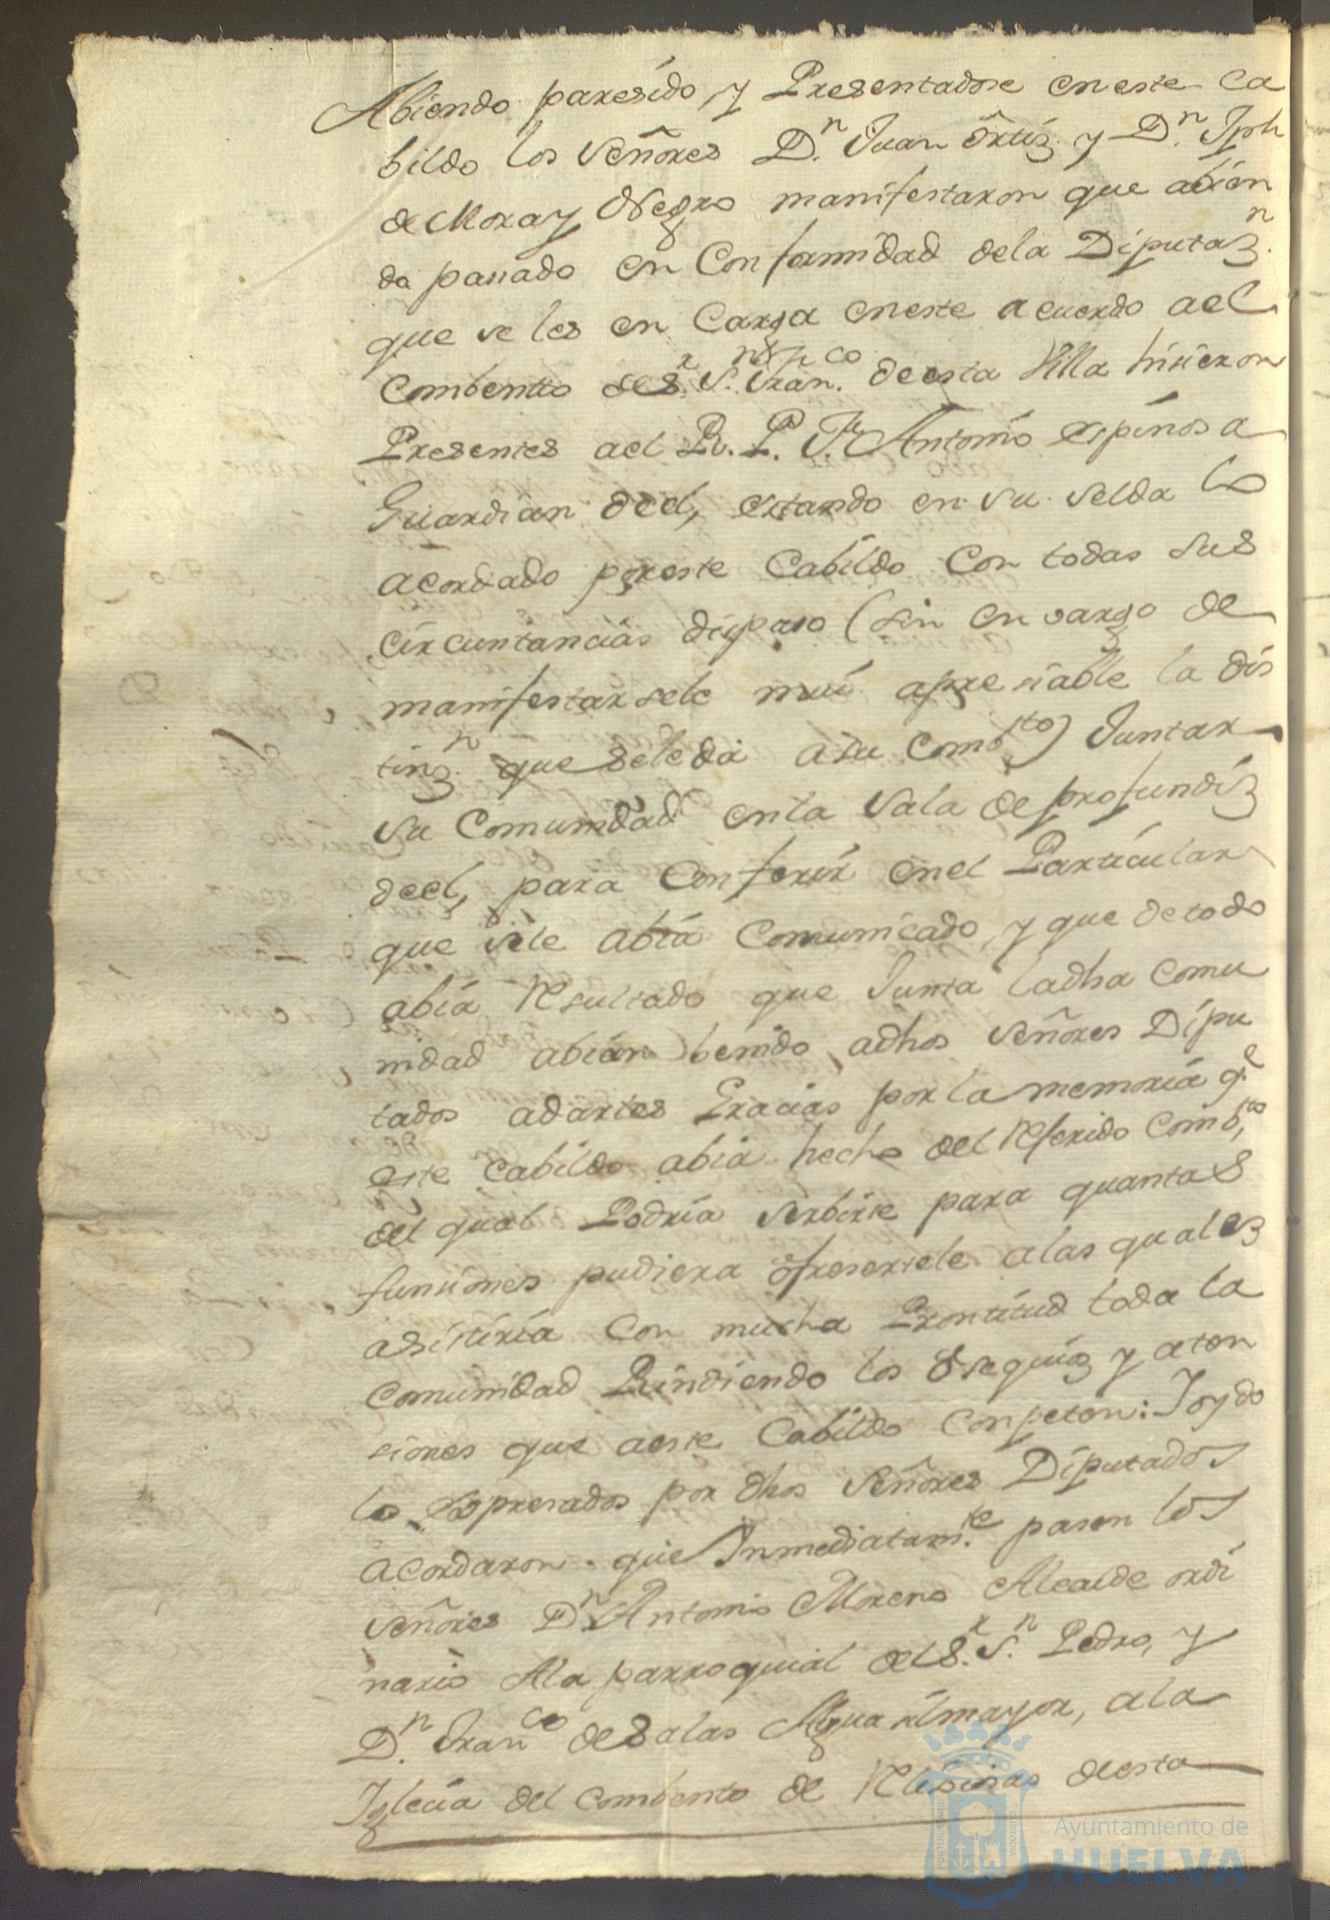 Abiendo paresido, y Presentadose eneste Ca
bildo los Señores D.n Juan Ortiz y D.n Jph
de Mora y Negro manifestaron que abien
do pasado en Conformidad dela Diputaz.n
que se les en Carga eneste acuerdo ael
Combentto de S.r S.n Fran.co deesta Villa hisieron
Presentes ael R. P. Fr. Antonio espinosa
Guardian deel, estando en su selda lo
acordado poreste Cabildo Con todas sus
circuntancias dispuso (sin en vargo de
manifestarsele mui apresiable la dis
tinz.n que sele da a su Comb.to) Juntar
su Comunidad enla Sala de profundiz
deel, para Conferir enel Particular
que sele abia Comunicado, y que detodo
abia Resultado que Junta ladha Comu
nidad abian benido adhos Señores Dipu
tados adarles Gracias por la memoria q.e
este Cabildo abia hecho del Referido Comb.to
del qual Podria serbirse para quantas
funsiones pudiera ofresersele alas quales
asistiria Con mucha Prontitud toda la
Comunidad Rindiendo los Osequios y aten
siones que aeste Cabildo Conpeten: I oydo
lo Espresados por dhos Señores Diputados
acordaron que Inmediatam.te pasen los
Señores D.n Antonio Moreno Alcalde ordi
nario Ala parroquial del S.r S.n Pedro, y
D.n Fran.co deSalas Alguasilmayor, ala
Iglecia del Combento de Relisiosas deesta
Ayuntamiento de
HUELVA